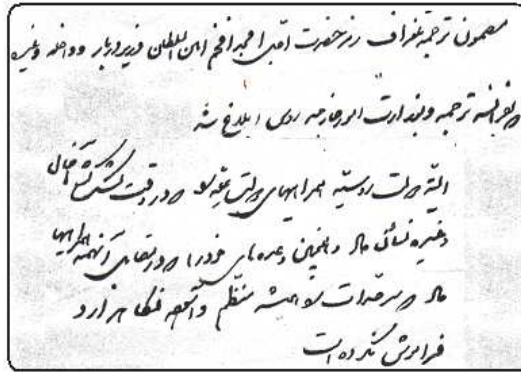 مضمون ترجمه تلغراف رمز حضرت اقدس امجد افخم امین السلطان وزیر دربار و داخله و غیره
بفرانسه ترجمه و بوزارت امور خارجه روس ابلاغ شد
البته دولت روسیه همراهیهای دولت علیه در وقت لشکرکشی آخال
ذخیره رسانی ها و همچنین وعده های خود را در تلافی آنهمه همراهیها
ها در سرحدات همیشه منظم و
فراموش نکرده است